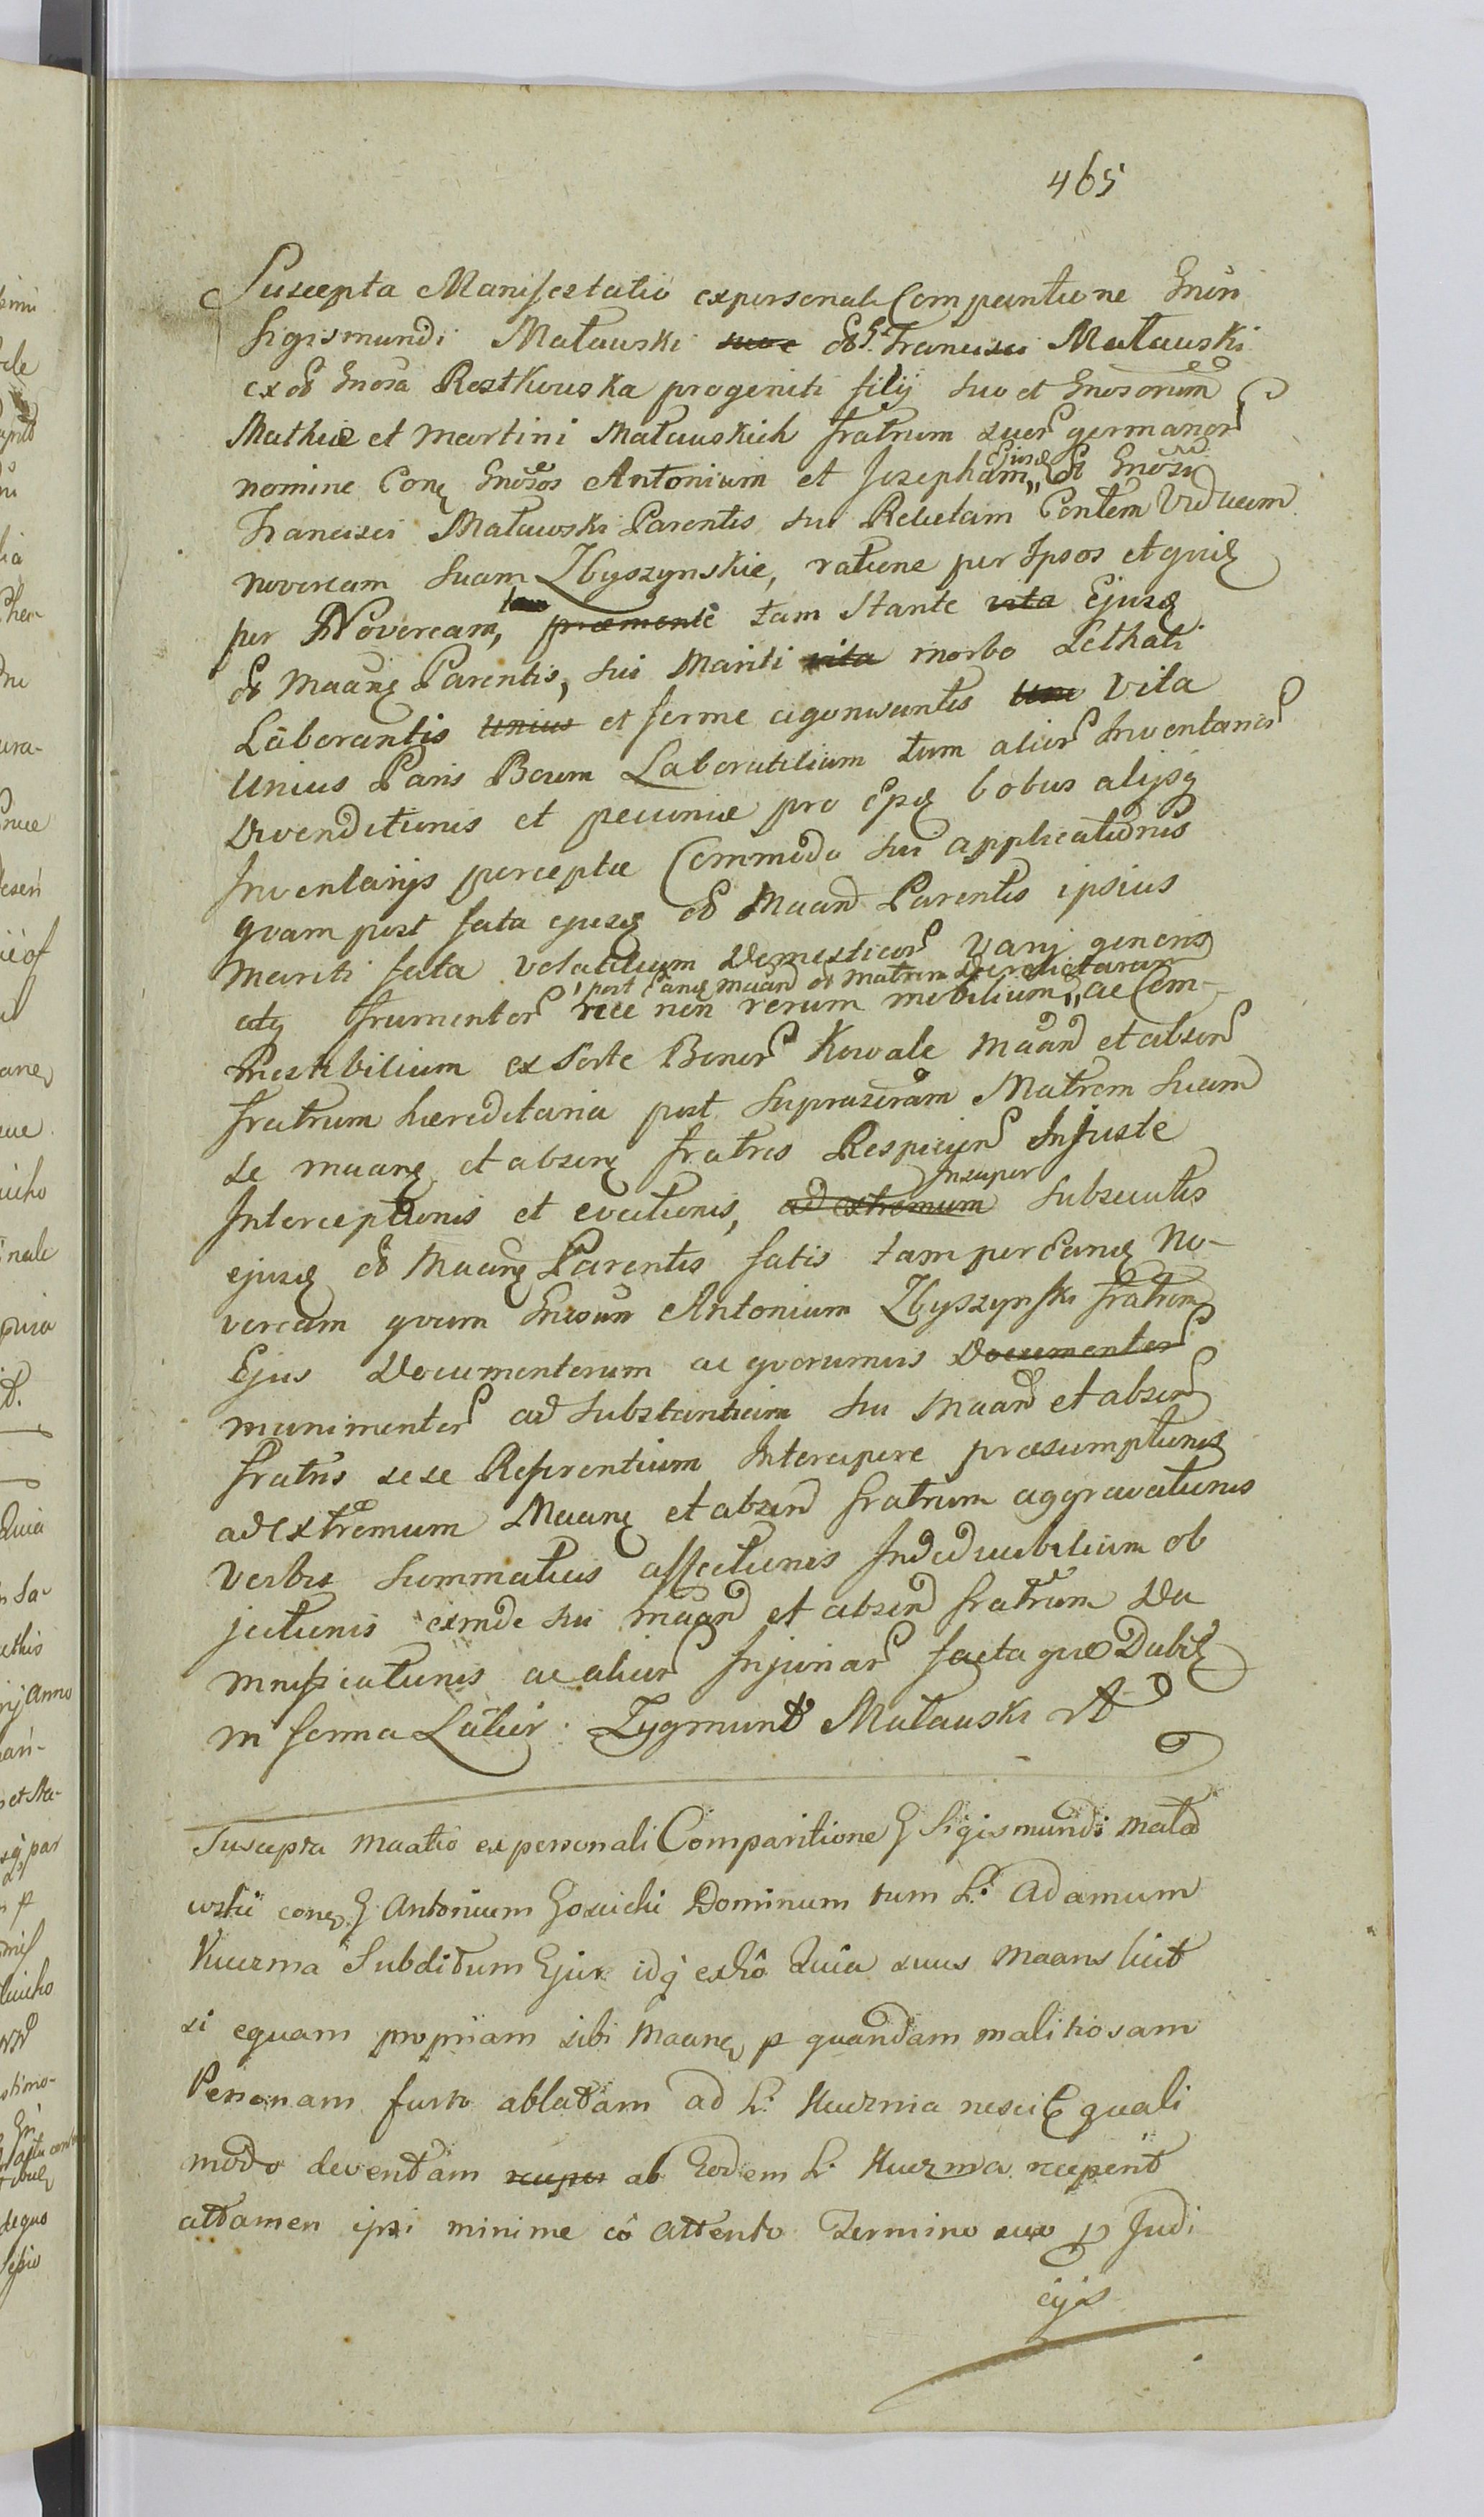 465
Suscepta Manifestatio ex personali Comparitione Gnosi
Sigismundi Małauski suo e olim G. Francisci Małauski
ex olim Gnosa Rostkouska progeniti filij suo et Gnosorum
Mathiæ et Martini Małauskich fratrum suor germanor
nomine Conq Gnosos Antonium et Josepham Ejusq olim Gnosi
Francisci Małauski Parentis sui Relictam Contem Viduam
novercam suam Zbyszynskie, ratione per Ipsos et quidq
per Novercam, tam præmente tam stante vita Ejusq
olim Maanq Parentis, sui Mariti vita morbo Lethali
Laborantis unius et ferme agonisantis Uni vita
Unius Paris Boum Laboratilium tum alior Inventarior
Divenditionis et pecuniæ pro ipsq bobus alijsq
Inventarijs perceptæ Commodo sui applicationis
qvam post fata ejusq olim Maand Parentis ipsius
Mariti fata volatilium Domesticor varij generis
atq frumentor nec non rerum mobilium
post eanq maand olim matrem Derelictarum ac Com-
mestibilium ex Sorte Bonor Kowale Maand et absen
fratrum hæreditaria post supraseram Matrem suam
se maanq et absenq fratres Respicien Injuste
Interceptionis et evectionis, ad extremum Insuper subsecutis
ejusq olim Maanq Parentis fatis tam per Eanq No-
vercam qvam Gnosum Antonium Zbyszynski fratrem
Ejus Documentorum ac qvorumvis Documentor
munimentor ad substantiam sui Maand et absen
fratris sese Referentium Intercipere præsumptionis
ad extremum Maanq et absend fratrum aggravationis
Verbis summaticis affectionis Indeducibilium ob
jectionis exinde sui maand et absend fratrum Da
mnificationis ac alior Injuriar facta quæ Dabit
in forma Latior. Zygmunt Małauski
Suscepta maatio ex personali Comparitione G Sigismundi Mała
wski conq G Antonium Dominum tum L. Adamum
Kuzma Subditum Ejus idq exhô Quia suus Maans licet
si equam propriam sibi Maanq p quandam malitiosam
Personam furto ablatam ad L. Kuzma nescit quali
modo deventam recuper ab Eodem L. Kuzma recepent
attamen ipsi minime eô attento Termino suo p Judi
cijs